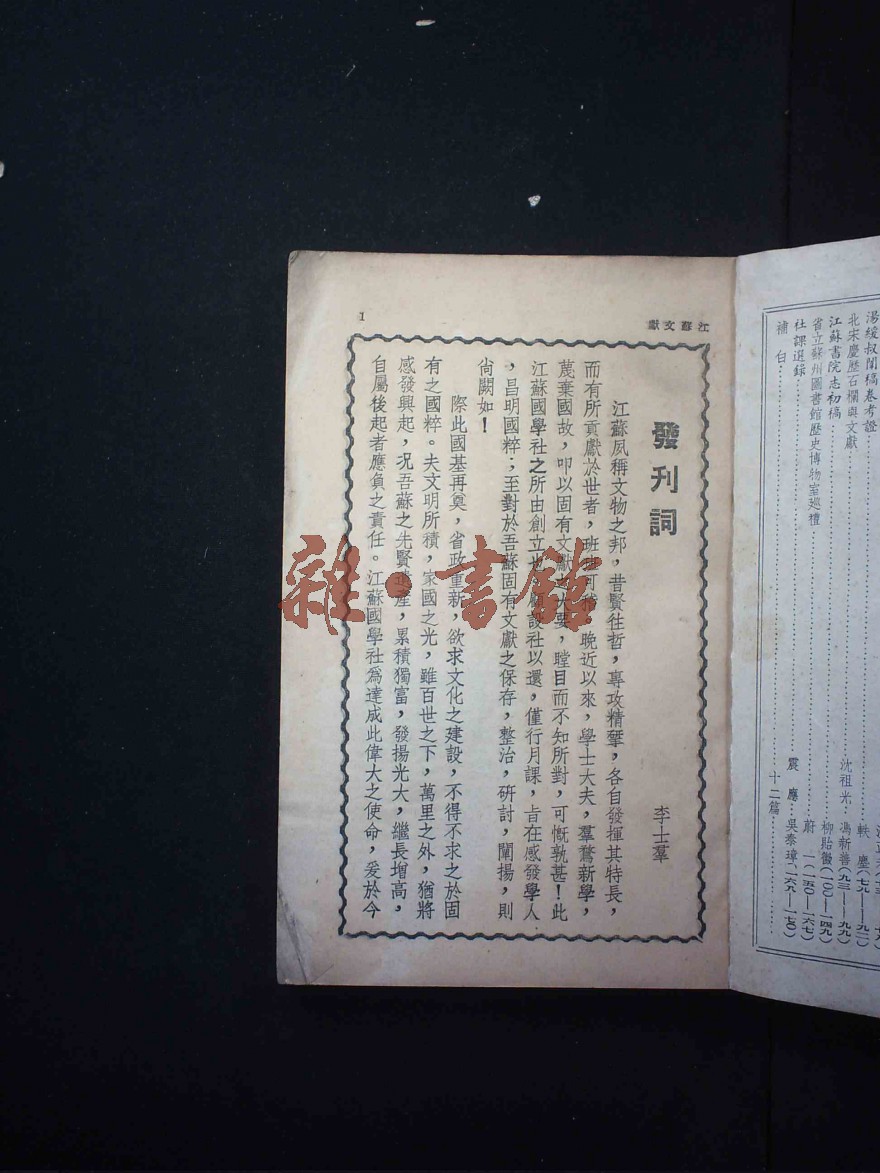 湯緩叔闈稿卷考證
軼塵(七九——九二)
北宋慶歷石欄與文獻
沈祖光、馮新善(九三——九九)
江蘇書院志初稿
柳詒徵(一〇〇——一四九)
省立蘇州圖書館歷史博物室巡禮
蔚一(一五〇——一六七)
社課選錄
震應、吳泰璋(一六八——一七〇)
補白
十二篇
江蘇文獻
1
發刊詞
李士羣
江蘇夙稱文物之邦，昔賢往哲，專攻精擘，各自發揮其特長，
而有所貢獻於世者，班班可稽，晚近以來，學士大夫，羣騖新學，
蔑棄國故，叩以固有文獻大要，瞠目而不知所對，可慨孰甚！此
江蘇國學社之所由創立也，顧設社以還，僅行月課，旨在感發學人
，昌明國粹；至對於吾蘇固有文獻之保存，整治，研討，闡揚，則
尚闕如！
際此國基再奠，省政重新，欲求文化之建設，不得不求之於固
有之國粹。夫文明所積，家國之光，雖百世之下，萬里之外，猶將
感發興起，况吾蘇之先賢遺產，累積獨富，發揚光大，繼長增高，
自屬後起者應負之責任。江蘇國學社爲達成此偉大之使命，爰於今
雜·書館